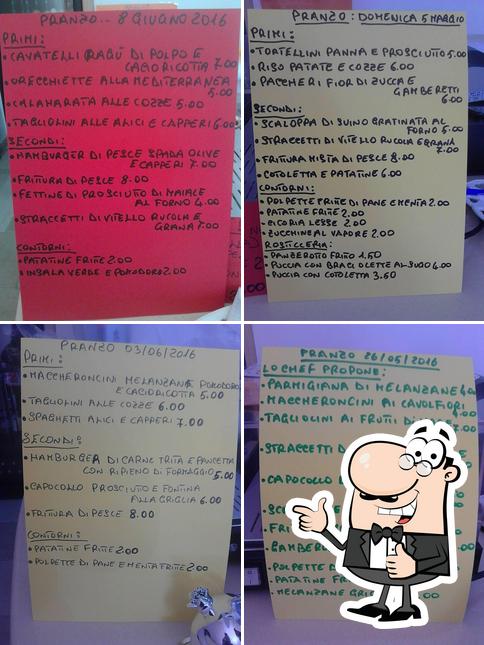 PRANZO... 8 GIUGNO 2016
PRIMI:
• CAVATELLI RAGÙ DI POLPO E
CACIORICOTTA 7.00
• ORECCHIETTE ALLA MEDITERRANEA
5.00
• CALAMARATA ALLE COZZE 5.00
• TAGLIOLINI ALLE ALICI E CAPPERI 6.00
SECONDI:
• HAMBURGER DI PESCE SPADA OLIVE
E CAPPERI 7.00
• FRITTURA DI PESCE 8.00
• FETTINE DI PROSCIUTTO DI MAIALE
AL FORNO 4.00
• STRACCETTI DI VITELLO RUCOLA E
GRANA 7.00
CONTORNI:
• PATATINE FRITTE 2.00
• INSALA VERDE E POMODORO 2.00
PRANZO: DOMENICA 5 MAGGIO
PRIMI:
• TORTELLINI PANNA E PROSCIUTTO 5.00
• RISO PATATE E COZZE 6.00
• PACCHERI FIOR DI ZUCCA E
GAMBERETTI
6.00
SECONDI:
• SCALOPPA DI SUINO GRATINATA AL
FORNO 5.00
• STRACCETTI DI VITELLO RUCOLA E GRANA
7.00
• FRITTURA MISTA DI PESCE 8.00
• COTOLETTA E PATATINE 6.00
CONTORNI:
• POLPETTE FRITTE DI PANE E MENTA 2.00
• PATATINE FRITTE 2.00
• CICORIA LESSE 2.00
• ZUCCHINE AL VAPORE 2.00
ROSTICCERIA:
• PANZEROTTO FRITTO 1.50
• PUCCIA CON BRACIOLETTE AL SUGO 4.00
• PUCCIA CON COTOLETTA 3.50
PRANZO 03/06/2016
PRIMI:
• MACCHERONCINI MELANZANE POMODORO
E CACIORICOTTA 5.00
• TAGLIOLINI ALLE COZZE 6.00
• SPAGHETTI ALICI E CAPPERI 7.00
SECONDI:
• HAMBURGER DI CARNE TRITA E PANCETTA
CON RIPIENO DI FORMAGGIO 5.00
• CAPOCOLLO PROSCIUTTO E FONTINA
ALLA GRIGLIA 6.00
• FRITTURA DI PESCE 8.00
CONTORNI:
• PATATINE FRITTE 2.00
• POLPETTE DI PANE E MENTA FRITTE 2.00
PRANZO 26/05/2016
LO CHEF PROPONE:
• PARMIGIANA DI MELANZANE 4.00
• MACCHERONCINI AI CAVOLFIORI
4.00
• TAGLIOLINI AI FRUTTI DI
7.00
• STRACCETTI
• CAPOCOLLO
• POLPETTE D
• PATATINE FR
• MELANZANE GRIG .00